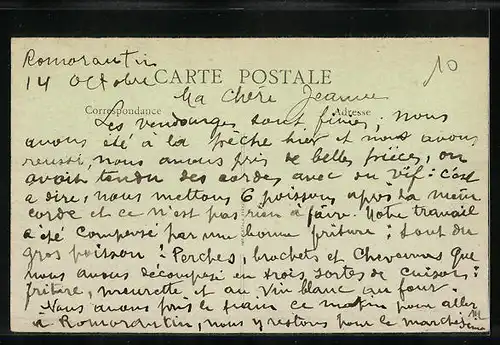 Romorantin
14 Octobre
CARTE POSTALE
10
Ma Chère Jeanne
Correspondance
Adresse
Les vendanges sont finies ; nous
avons été à la pêche hier et nous avons
reussi, nous avons pris de belles pièces, on
avait tendu des cordes avec du vif : c'est
a dire, nous mettons 6 poissons après la même
corde et ce n'est pas rien à faire. Notre travail
a été compensé par une bonne friture : tout du
gros poisson : Perches, brochets et Chevennes que
nous avons décomposé en trois sortes de cuisson :
friture, meurette et au vin blanc au four.
Nous avons pris le train ce matin pour aller
à Romorantin, nous y restons pour le marché